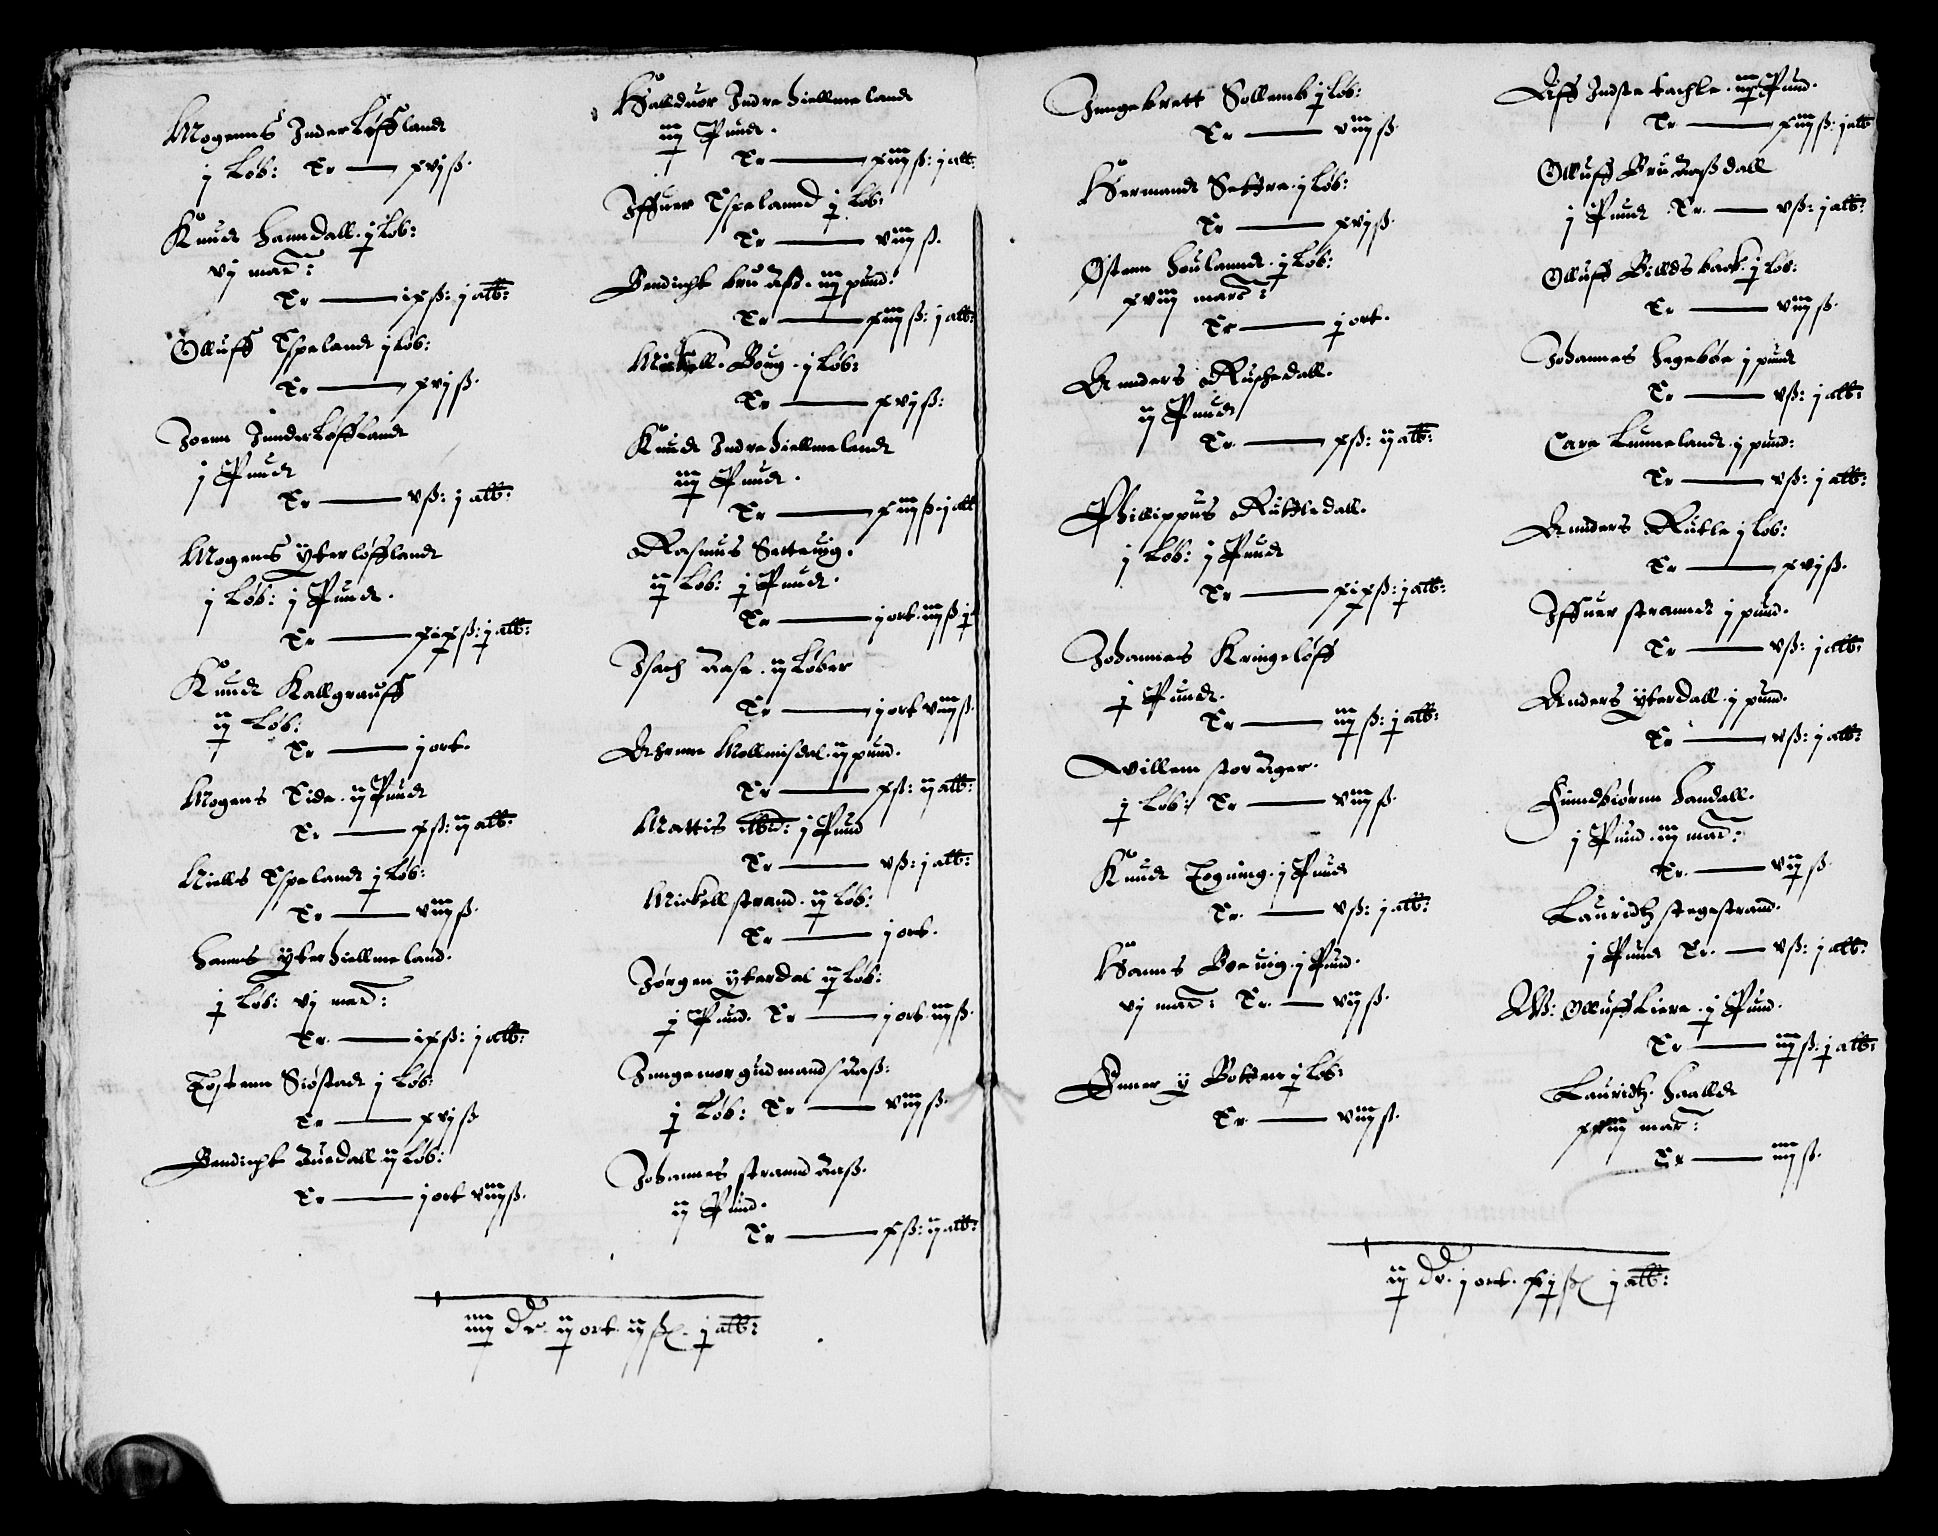 Mogenns Inder Løffland
j Løb: Er — xvj ß.
Knud Hamdall. j Løb:
vj marc:
Er — ix ß: j alb:
Olluff Espeland j Løb:
Er — xvj ß.
Joenn Innder Løffland
j Pund
Er — v ß: j alb:
Mogens Ytter Løffland
j Løb: j Pund.
Er — xix ß: j alb:
Knud Kallgrauff
ij Løb:
Er — j ort.
Mogens Eide. ij Pund
Er — x ß: ij alb:
Niells Espeland j Løb:
Er — viij ß.
Hanns Ytter Hiellmeland.
j Løb: vj marc:
Er — ix ß: j alb:
Tostenn Siøstad j Løb:
Er — xvj ß
Bendicht Aaedall ij Løb:
Er — j ort viij ß.
Halduor Indre Hiellmeland
iij Pund.
Er — xiij ß: j alb:
Iffuer Espelannd j Løb:
Er — viij ß.
Bendicht bru Aas. iij pund.
Er — xiij ß: j alb:
Mickell. Boug. j Løb:
Er — xvj ß:
Knud Indre Hiellmeland
iij Pund.
Er — xiij ß: j alb
Rasmus Setteuig.
ij Løb: j Pund.
Er — j ort. iij ß j
Isach Aase. ij Løber
Er — j ort viij ß.
Mollmisdal. ij pund.
Er — x ß: ij alb:
Mattis ibid: j Pund
Er — v ß: j alb:
Mickell strand. ij Løb:
Er — j ort.
Jørgen ytterdal ij Løb:
j Pund. Er — j ort. iij ß.
Inngemor gudmands Aaß:
j Løb: Er — viij ß.
Johannes strannd Aaß.
ij Pund.
Er — x ß: ij alb:
iiij dr. ij ort. ij ß. j alb:
Inngebrett Sollemb j Løb:
Er — viij ß.
Hermand Settre. j Løb:
Er — xvj ß.
Østenn Houlannd. j Løb:
xviij marc:
Er — j ort.
Annders Ruskedall.
ij Pund
Er — x ß: ij alb:
Phillippus Rettledall.
j Løb: j Pund
Er — xix ß: j alb:
Johannes Kringeløff
j Pund.
Er — iij ß: j alb:
Willem stor Ager.
j Løb: Er — viij ß.
Knud Tøgning. j Pund
Er — v ß: j alb:
Hanns Boeuig. j Pund.
vj marc: Er — vij ß.
Enner y Botten j Løb:
Er — viij ß.
Aff Indste tachle. iij Pund.
Er — xiij ß: j alb
Olluff Bru Aaßdall
j Pund. Er. — v ß: j alb:
Olluff Billdsback. j Løb:
Er — viij ß.
Johannes Hegebøe j pund
Er — v ß: j alb:
Care Lunneland. j pund:
Er — v ß: j alb:
Annders Rutle j Løb:
Er — xvj ß.
Iffuer strannd j pund.
Er — v ß: j alb:
Anders Ytterdall. j pund.
Er — v ß: j alb:
Finndbiørnn Handall.
j Pund. iij marc:
Er. — vij ß.
Lauridtz stegestrand.
j Pund Er. — v ß: j alb:
W: Olluff Liere. j Pund.
Er — iij ß: j alb:
Lauridtz. Haalld
xviij marc:
Er — iiij ß.
ij dr. j ort. xij ß j alb: